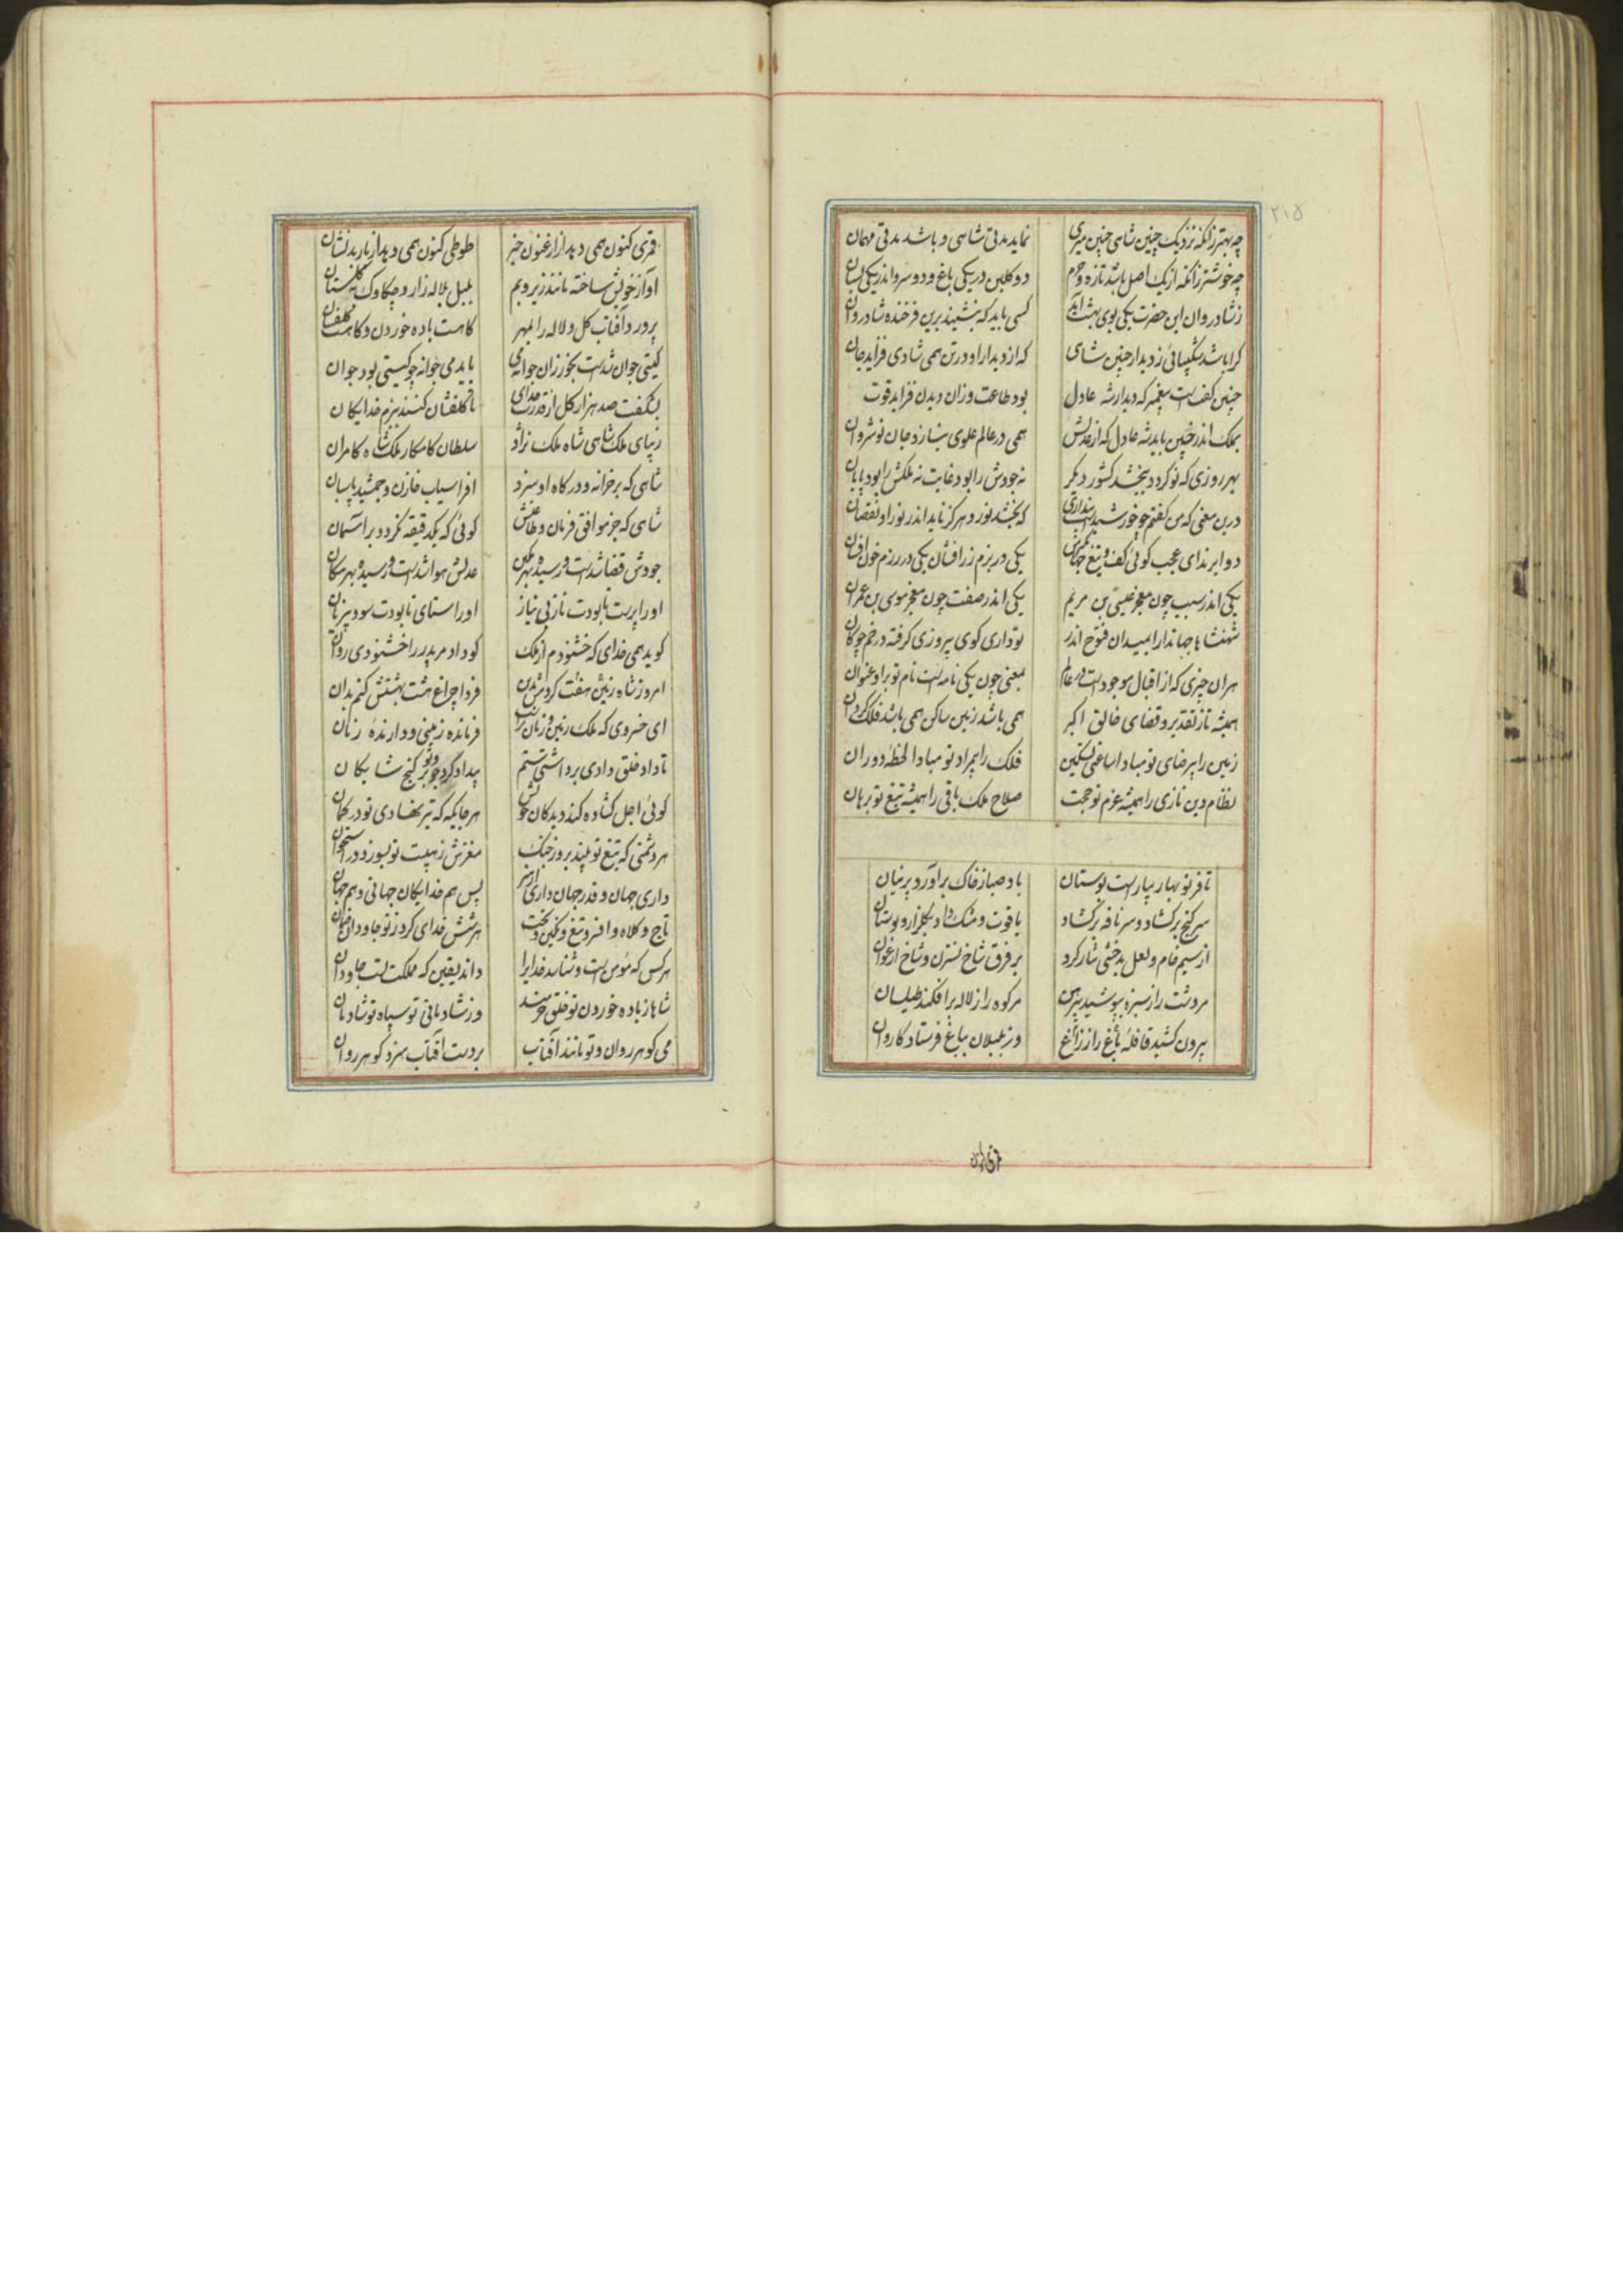 ۲۱۵
چه بهتر زانکه نزدیک چنین شاهی چنین میری نماید مدتی شاهی و باشد مدتی مهمان
چه خوشتر زانکه از یک اصل باشد تازه و خرم دو گلبن در یکی باغ و دو سرو اندر یکی بستان
ز شادروان این حضرت یکی بوی بهشت آید کسی باید که بنشیند برین فرخنده شادروان
کرا باشد شکیبائی ز دیدار چنین شاهی که از دیدار او در تن همی شادی فزاید جان
چنین گفت است پیغمبر که دیدار شه عادل بود طاعت وزان دیدن فزاید قوت
بملک اندر چنین باید شه عادل که از عدلش همی در عالم علوی بنازد جان نوشروان
بهر روزی که نو گردد ببخشد کشور دیگر نه جودش را بود غایت نه ملکش را بود پایان
درین معنی که من گفتم چو خورشید است پنداری که بخشد نور و هرگز ناید اندر نور او نقصان
دو ابرند ای عجب گوئی کف و تیغ جهانگیرش یکی در بزم زرافشان یکی در رزم خون افشان
یکی اندر سبب چون معجز عیسی بن مریم یکی اندر صفت چون معجز موسی بن عمران
شهنشاها جهاندارا بمیدان فتوح اندر تو داری گوی پیروزی گرفته در خم چوگان
هران چیزی که از اقبال موجود است در عالم بمعنی چون یکی نامه است نام تو برا و عنوان
همیشه تا ز تقدیر و قضای خالق اکبر همی باشد زمین ساکن همی باشد فلک گردان
زمین را بی رضای تو مبادا ساعتی تسکین فلک را بیمراد تو مبادا لحظه دوران
نظام دین تازی را همیشه عزم تو حجت صلاح ملک باقی را همیشه تیغ تو برهان
تا فر نوبهار بیاراست بوستان باد صبا ز خاک برآورد پرنیان
سر گنج برگشاد و سر نافه برگشاد یاقوت و مشک داد بگلزار و بوستان
از سیم خام و لعل بدخشی نثار کرد بر فرق شاخ نسترن و شاخ ارغوان
مر دشت را ز سبزه بپوشید پیرهن مر کوه را ز لاله برافکند طیلسان
بیرون کشید قافله باغ را ز زاغ وز بلبلان بباغ فرستاد کاروان
قمری کنون همی دهد از ارغنون خبر طوطی کنون همی دهد از باربد نشان
آواز خویش ساخته مانند زیر و بم بلبل بلاله زار و چکاوک به گلستان
پرورد آفتاب گل و لاله را بمهر گاهست باده خوردن و گاهست
گیتی جوان شدست بخور زان جوانه می باید می جوانه چو گیتی بود جوان
بشکفت صد هزار گل از قدرت خدای تا گلفشان کنند ببزم خدایگان
زیبای ملک شاهی شاه ملک نژاد سلطان کامکار ملکشاه کامران
شاهی که بر خزانه و درگاه او سزد افراسیاب خازن و جمشید پاسبان
شاهی که جز موافق فرمان و طاعتش گوئی که یکدقیقه نگردد بر آسمان
جودش قضا شدست و رسیده بهر مکین عدلش هوا شدست و رسیده بهر مکان
او را پرست تا بودت ناز بی نیاز او را ستای تا بودت سود بی زیان
گوید همی خدای که خشنودم از ملک کو داد مر پدر را خشنودی روان
امروز شاه زینت هفت کردمش بدین فردا چراغ هشت بهشتش کنم بدان
ای خسروی که ملک زمین و زمان تراست فرمانده زمینی و دارنده زمان
تا داد خلق دادی برداشتی ستم بیدادگر دو چیز گنج شایگان
گوئی اجل گشاده کند دیدگان خویش هر جایگه که تیر نهادی تو در کمان
هر دشمنی که تیغ تو بیند بروز جنگ مغزش ز هیبت تو بسوزد در استخوان
داری جهان و قدر جهان داری از هنر پس هم خدایگان جهانی و هم جهان
تاج و کلاه و افسر و تیغ و نگین و تخت هر شش خدای کرد ز تو جاودان
هر کس که مومن است و شناسد خدایرا داند یقین که مملکت تست جاودان
شاها ز باده خوردن تو خلق خرمند وز شادمانی تو سپاه تو شادمان
می گوهر روان و تو مانند آفتاب بر دست آفتاب سزد گوهر روان